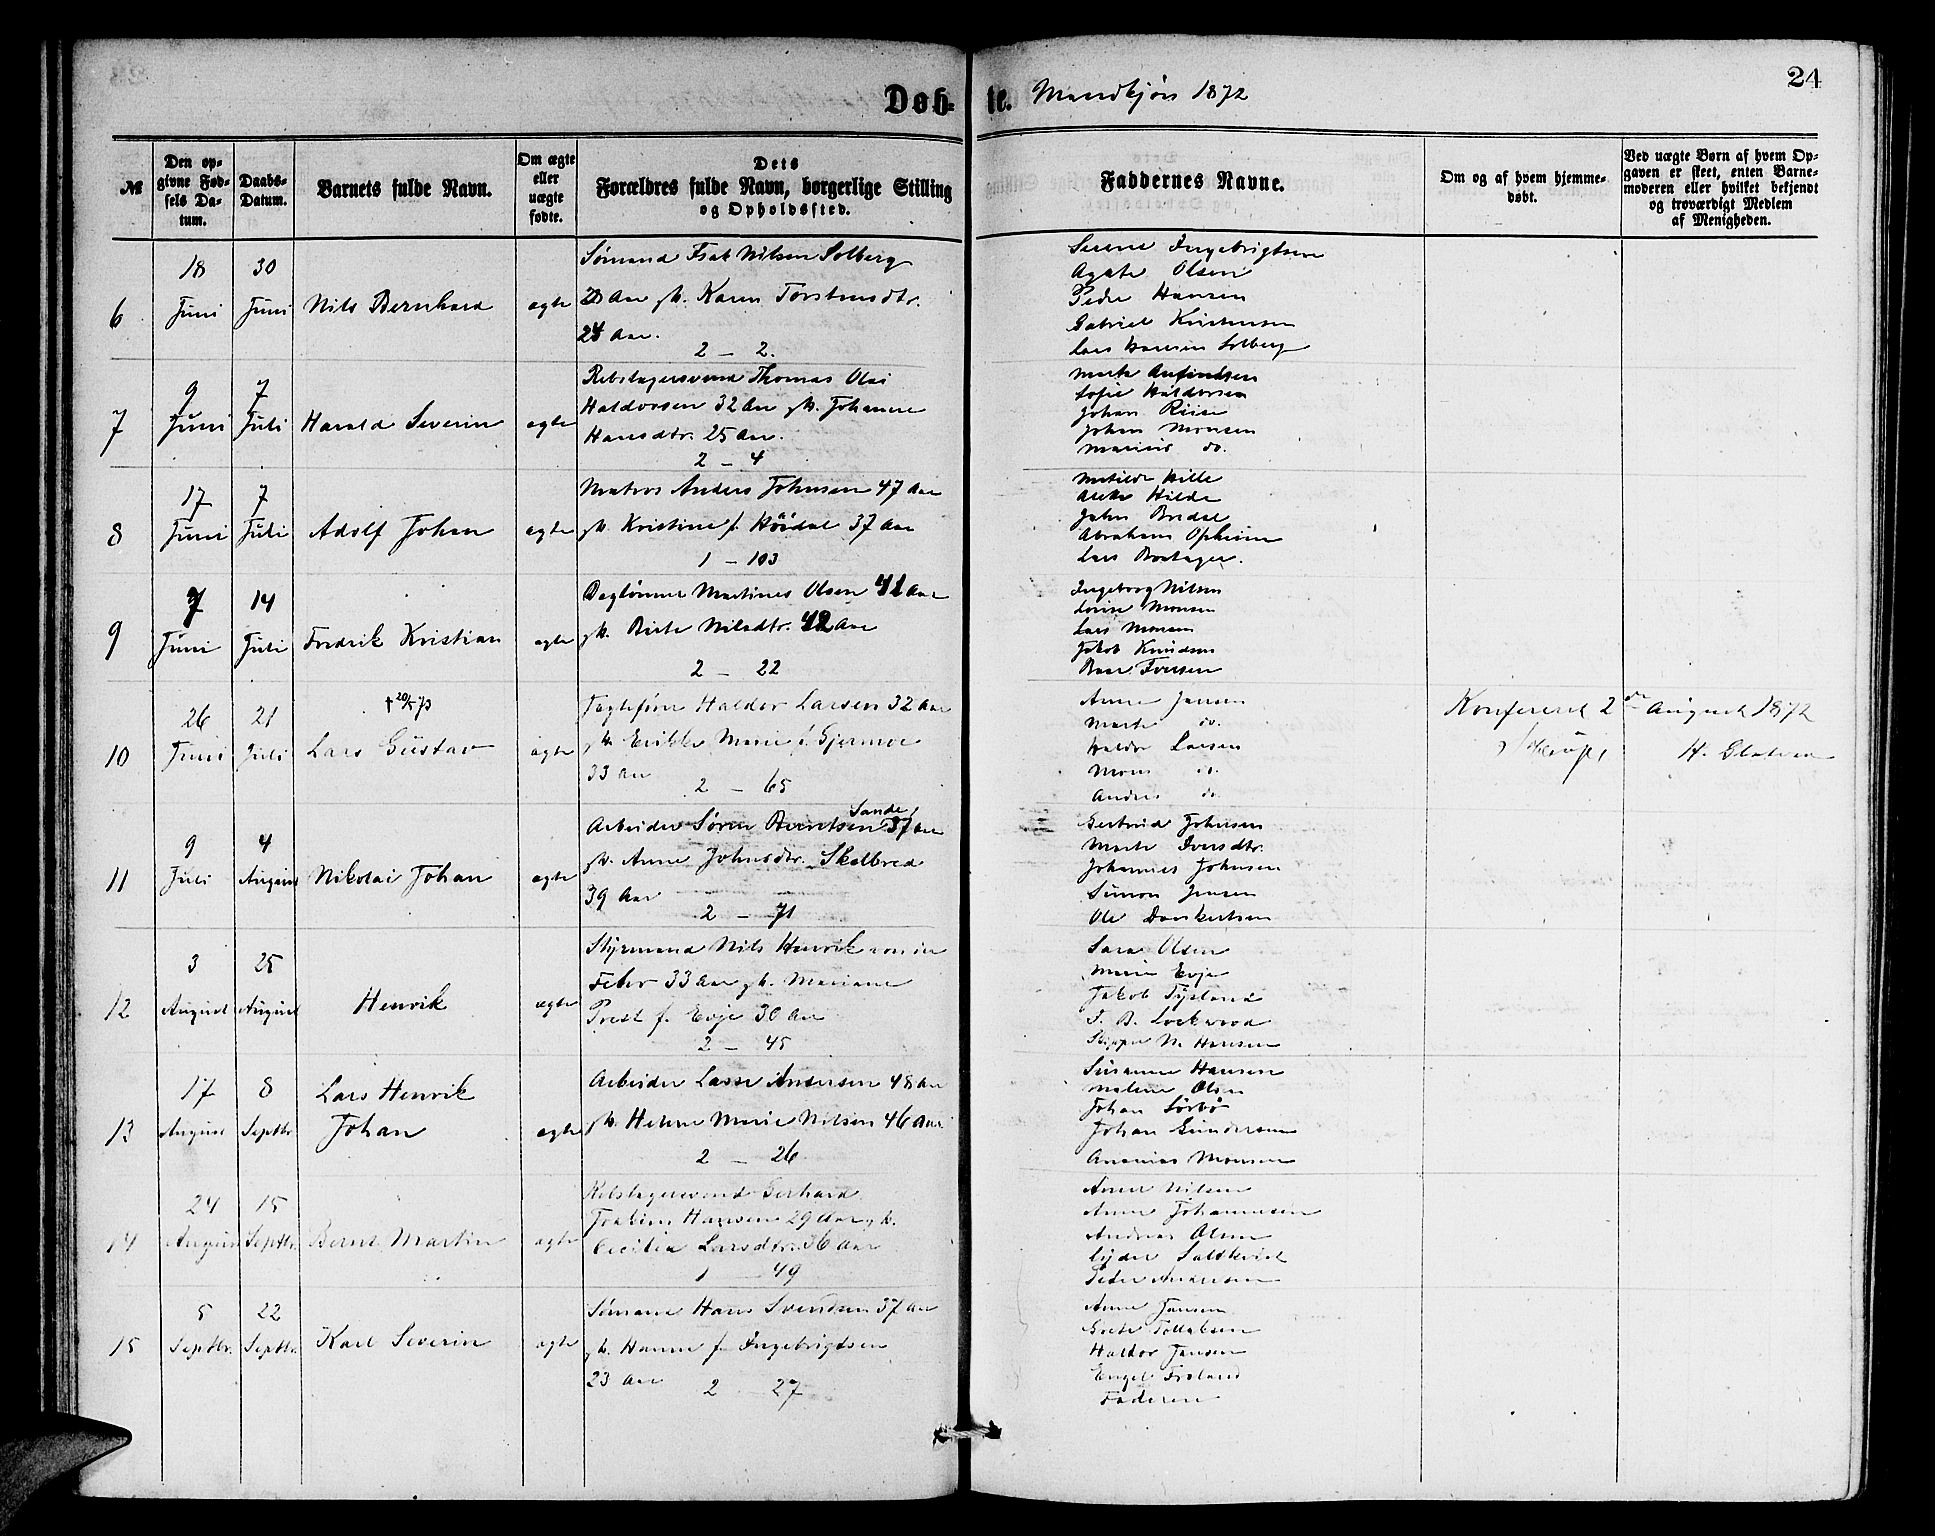 Døb- te. Mandkjøn 1872
24
№
Den op-
givne Fød-
sels Da-
tum.
Daabs-
Datum.
Barnets fulde Navn.
Om ægte
eller
uægte
fødte.
Dets
Forældres fulde Navn, borgerlige Stilling
og Opholdssted.
Faddernes Navne.
Om og af hvem hjemme-
døbt.
Ved uægte Børn af hvem Op-
gaven er skeet, enten Barne-
moderen eller hvilket bekjendt
og troværdigt Medlem
af Menigheden.
6
18
Juni
30
Juni
Nils Bernhard
ægte
Sømand Isak Nilsen Solberg
28 Aar gk. Karen Torstensdtr.
24 Aar.
2 – 2.
Serene Ingebrigtsen
Agate Olsen
Peder Hansen
Gabriel Kristensen
Lars Hansen Solberg
7
9
Juni
7
Juli
Harald Severin
ægte
Rebslagersvend Thomas Olai
Haldorsen 32 Aar gk. Johanne
Hansdtr. 25 Aar.
2 – 4
Marte Anfindsen
Sofie Haldorsen
Johan Riise
Johan Monsen
Marius do.
8
17
Juni
7
Juli
Adolf Johan
ægte
Matros Anders Johnsen 47 Aar
gk. Kristine f. Høidal 37 Aar
1 – 103
Matilde Hille
Hilde
John Bredal
Abraham Opheim
Lars
9
7
Juni
14
Juli
Fredrik Kristian
ægte
Daglønner Martines Olsen 41 Aar
gk. Birte Nilsdtr. 42 Aar
2 – 22
Ingeborg Nilsen
Lovise Monsen
Lars Monsen
Jakob Knudsen
Iversen
10
26
Juni
21
Juli
† 20/5 73
Lars Gustav
ægte
Haldor Larsen 32 Aar
gk. Erikke Marie f. Gjermoe
33 Aar
2 – 65
Anne Jansen
Marte do.
Haldor Larsen
Mons do.
Andrea do.
Konfereret 2den August 1872
H.
11
9
Juli
4
August
Nikolai Johan
ægte
Sande
Arbeider Søren Berntsen 37 Aar
gk. Anne Johnsdtr. Skelbred
39 Aar
2 – 71
Gertrud Johnsen
Marte Iversdtr.
Johannes Johnsen
Simon Jensen
Ole Dankertsen
12
3
August
25
August
Henrik
ægte
Styrmand Nils Henrik von der
Feher 33 Aar gk. Mariane
Prest f. Evje 30 Aar
2 – 45
Sara Olsen
Marie Evje
Jakob Tysland
T. B. Lockwood
Skipper N. Hansen
13
17
August
8
Septbr
Lars Henrik
Johan
ægte
Arbeider Lasse Andersen 48 Aar
gk. Helene Marie Nilsen 46 Aar
2 – 26
Susanne Hansen
Malene Olsen
Johan Sørbø
Johan Gundersen
Ananias Monsen
14
24
August
15
Septbr.
Bernt Martin
ægte
Rebslagersvend Gerhard
Joakim Hansen 29 Aar gk.
Cecilia Larsdtr. 36 Aar
1 – 49
Anne Nilsen
Anne Johannesen
Andreas Olsen
Lyder Saltkvist
Peder Andersen
15
5
Septbr.
22
Septbr.
Karl Severin
ægte
Sømand Hans Svendsen 37 Aar
gk. Hanne f. Ingebrigtsen
23 Aar
2 – 27
Anne Jansen
Grete Tollaksen
Haldor Jansen
Engel Frøland
Faderen